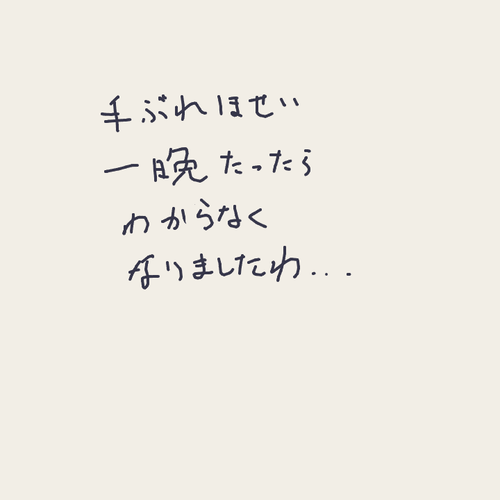 手ぶれほせい
一晩たったら
わからなく
なりましたわ...